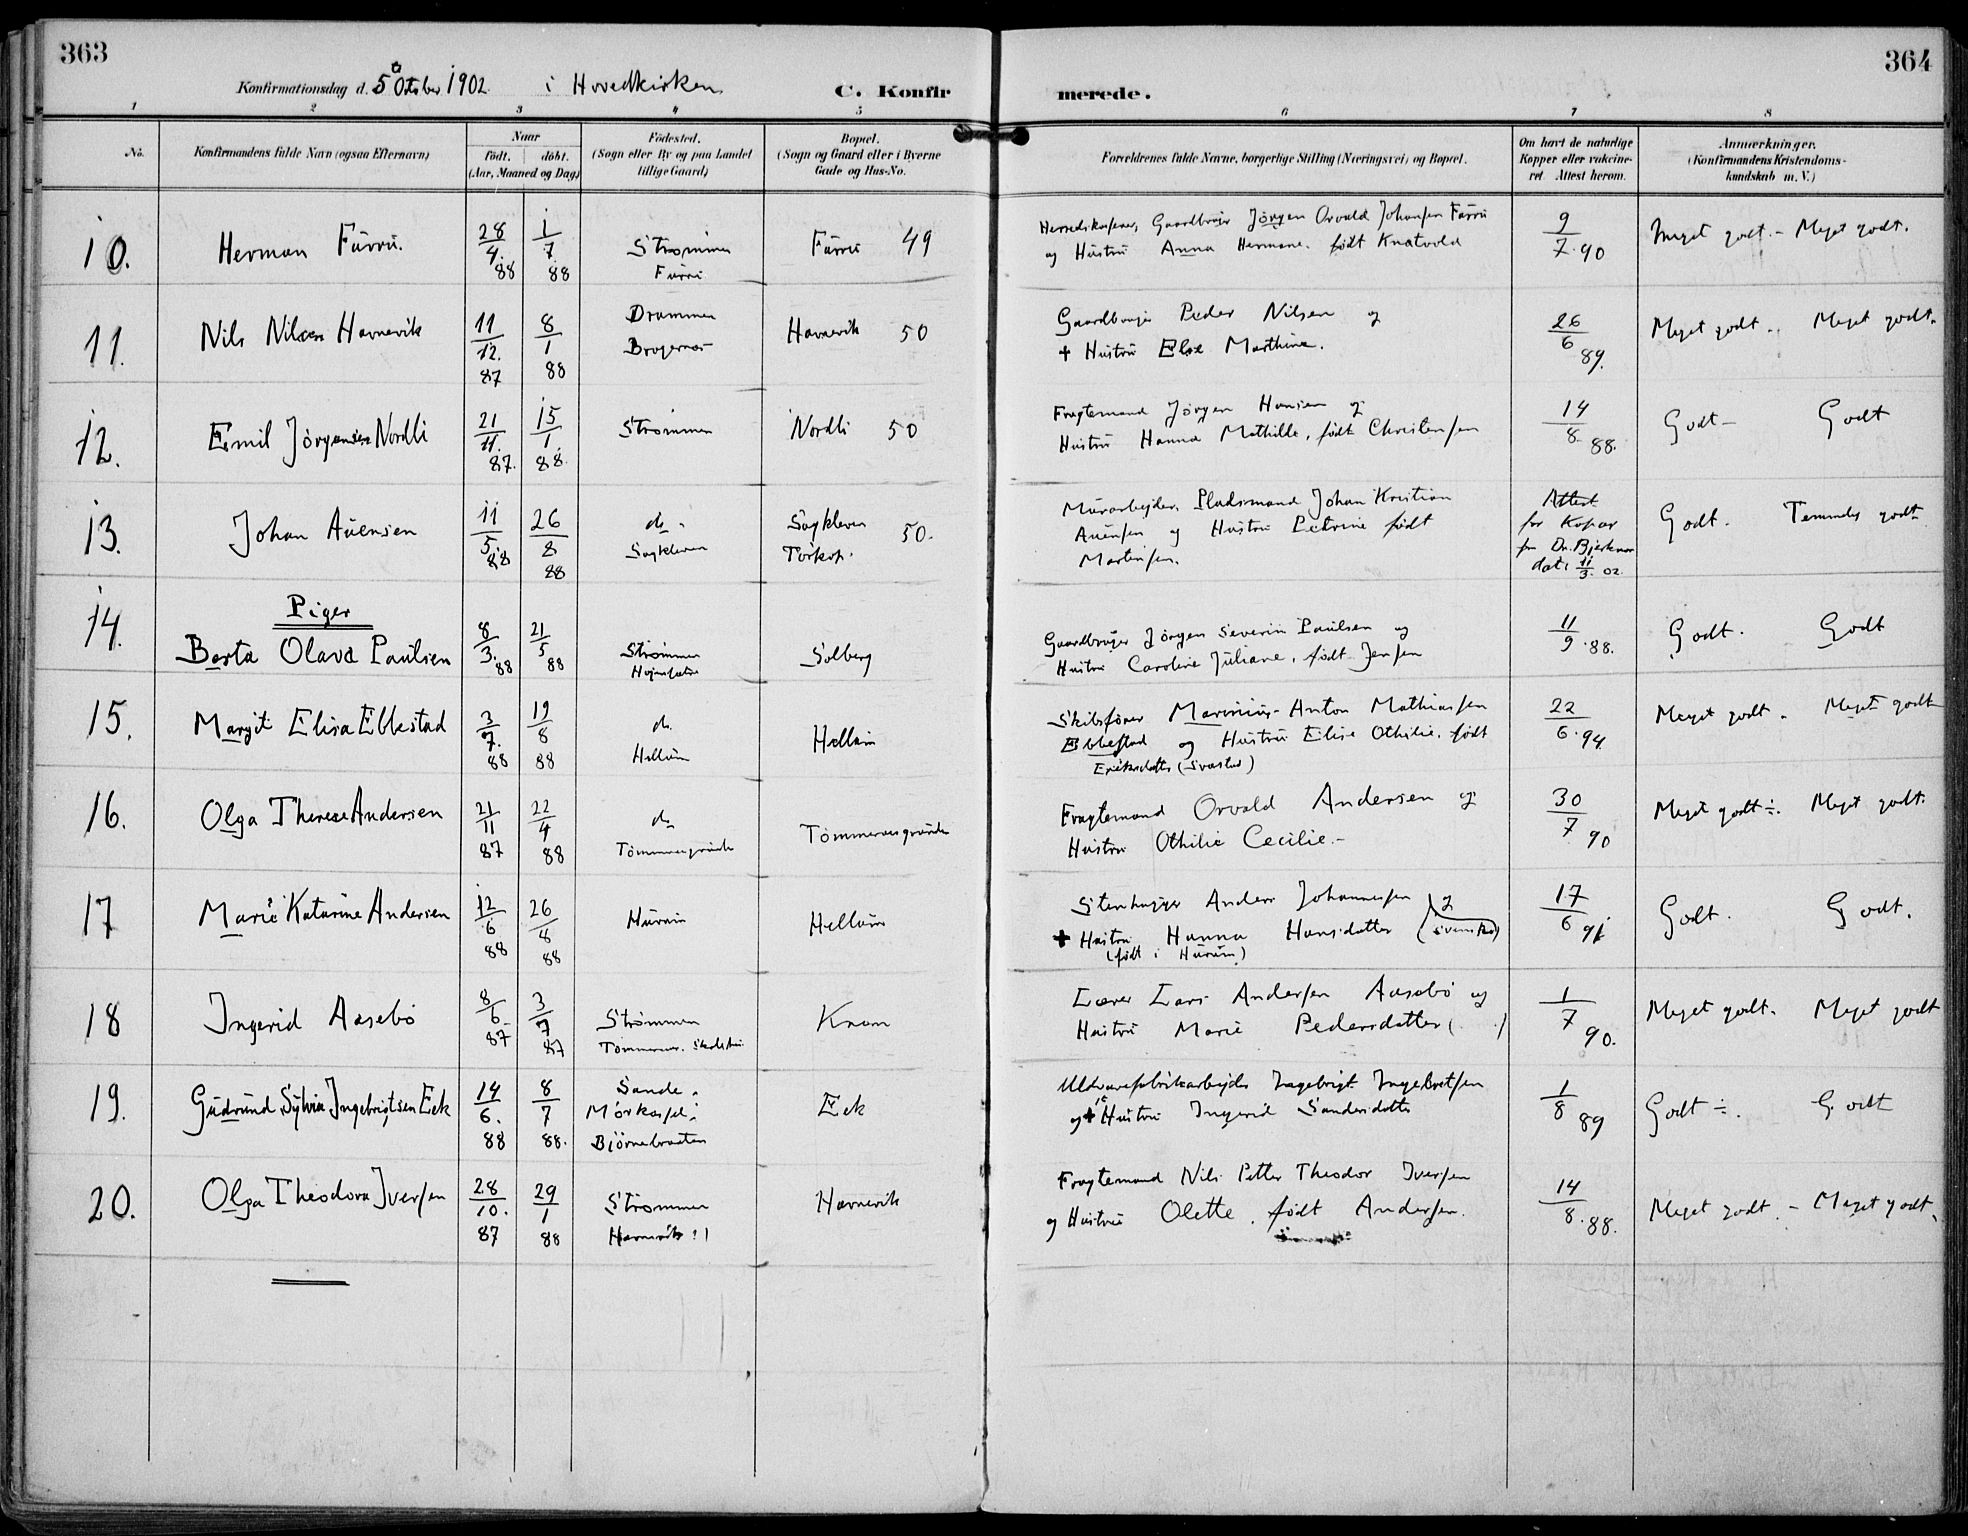 363
364
Konfirmationsdag d. 5 October 1902 i Hovedkirken
C. Konfirmerede.
1 2 3 4 5 6 7 8
No.
Konfirmandens fulde Navn (ogsaa Efternavn)
Naar
født. døbt.
(Aar, Maaned og Dag)
Fødested.
(Sogn eller By og paa Landet
tillige Gaard)
Bopæl.
(Sogn og Gaard eller i Byerne
Gade og Hus-No.
Forældrenes fulde Navne, borgerlige Stilling (Næringsvei) og Bopæl.
Om havt de naturlige
Kopper eller vakcine-
ret Attest herom.
Anmærkninger.
(Konfirmandens Kristendoms-
kundskab m. V.)
10. Herman Fürrü. 28/4. 88 1/7. 88 Strømmen Fürrü Fürrü 49
Gaardbruger Jörgen Orvald Johansen Fürrü
og Hustrü Anna Hermane. født Knatvold
9/7. 90 Meget godt. - Meget godt.
11. Nils Nilsen Havnevik 11/12. 87 8/1 88 Drammen Bragernes Havnevik 50
Gaardbruger Peder Nilsen og
+ Hustrü Else Marthine.
26/6 89. Meget godt. Meget godt.
12. Emil Jörgensen Nordli 21/11. 87. 15/1. 88. Strømmen Nordli 50
Fragtemand Jörgen Hansen og
Hustrü Hanna Mathilde, født Christensen
14/8. 88. Godt - Godt
13. Johan Aüensen 11/5 88 26/8 88 do. Sagkleven Sagkleven Torkop. 50.
Mürarbejder, Pladsmand Johan Kristian
Aüensen og Hustrü Petrine født
Martinsen.
Attest
for Kopper
fra Dr. Bjerknes
dat. 11/3. 02.
Godt. Temmelig godt
Piger
14. Berta Olava Paülsen 8/3. 88 21/5 88 Strømmen Solberg
Gaardbruger Jörgen Severin Paülsen og
Hustrü Caroline Jüliane, født Jensen
11/9. 88. Godt. Godt
15. Margit Elisa Ebbestad 3/7. 88 19/8 88 do. Hellüm Hellüm
Skibsfører Marinius Anton Mathiassen
Ebbestad og Hustrü Elise Othilie. født
Eriksdatter (Svarstad)
22/6. 94. Meget godt. Meget godt
16. Olga Therese Andersen 21/11 87 22/4 88 do Tömmeraasgründe Tömmeraasgründe
Fragtemand Orvald Andersen og
Hustrü Othilie Cecilie. -
30/7 90 Meget godt ÷. Meget godt.
17 Marie Katarine Andersen 12/6 88 26/8 88 Hürüm Hellüm
Stenhugger Anders Johannesen og
+ Hustrü Hanna Hansdatter (svenske)
(født i Hürüm)
17/6 91 Godt. Godt.
18 Ingerid Aasebö 8/6 87 3/7 87 Strömmen Tömmeraas. Knem
Lærer Lars Andersen Aasebö og
Hustrü Marie Pedersdatter ( . )
1/7 90. Meget godt. Meget godt
19. Güdründ Sylvia Ingebrigtsen Eek 14/6. 88 8/7 88. Sande. Mörkassel. Björnebraaten Eek
Uldvarefabrikarbejder Ingebrigt Ingebretsen
og + Hustrü Ingerid Sandersdatter
1/8 89 Godt ÷. Godt
20. Olga Theodora Iversen 28/10. 87 29/1 88 Strømmen Havnevik !) Havnevik
Fragtemand Nils Petter Theodor Iversen
og Hustrü Olette, født Andersen.
14/8. 88. Meget godt. - Meget godt.